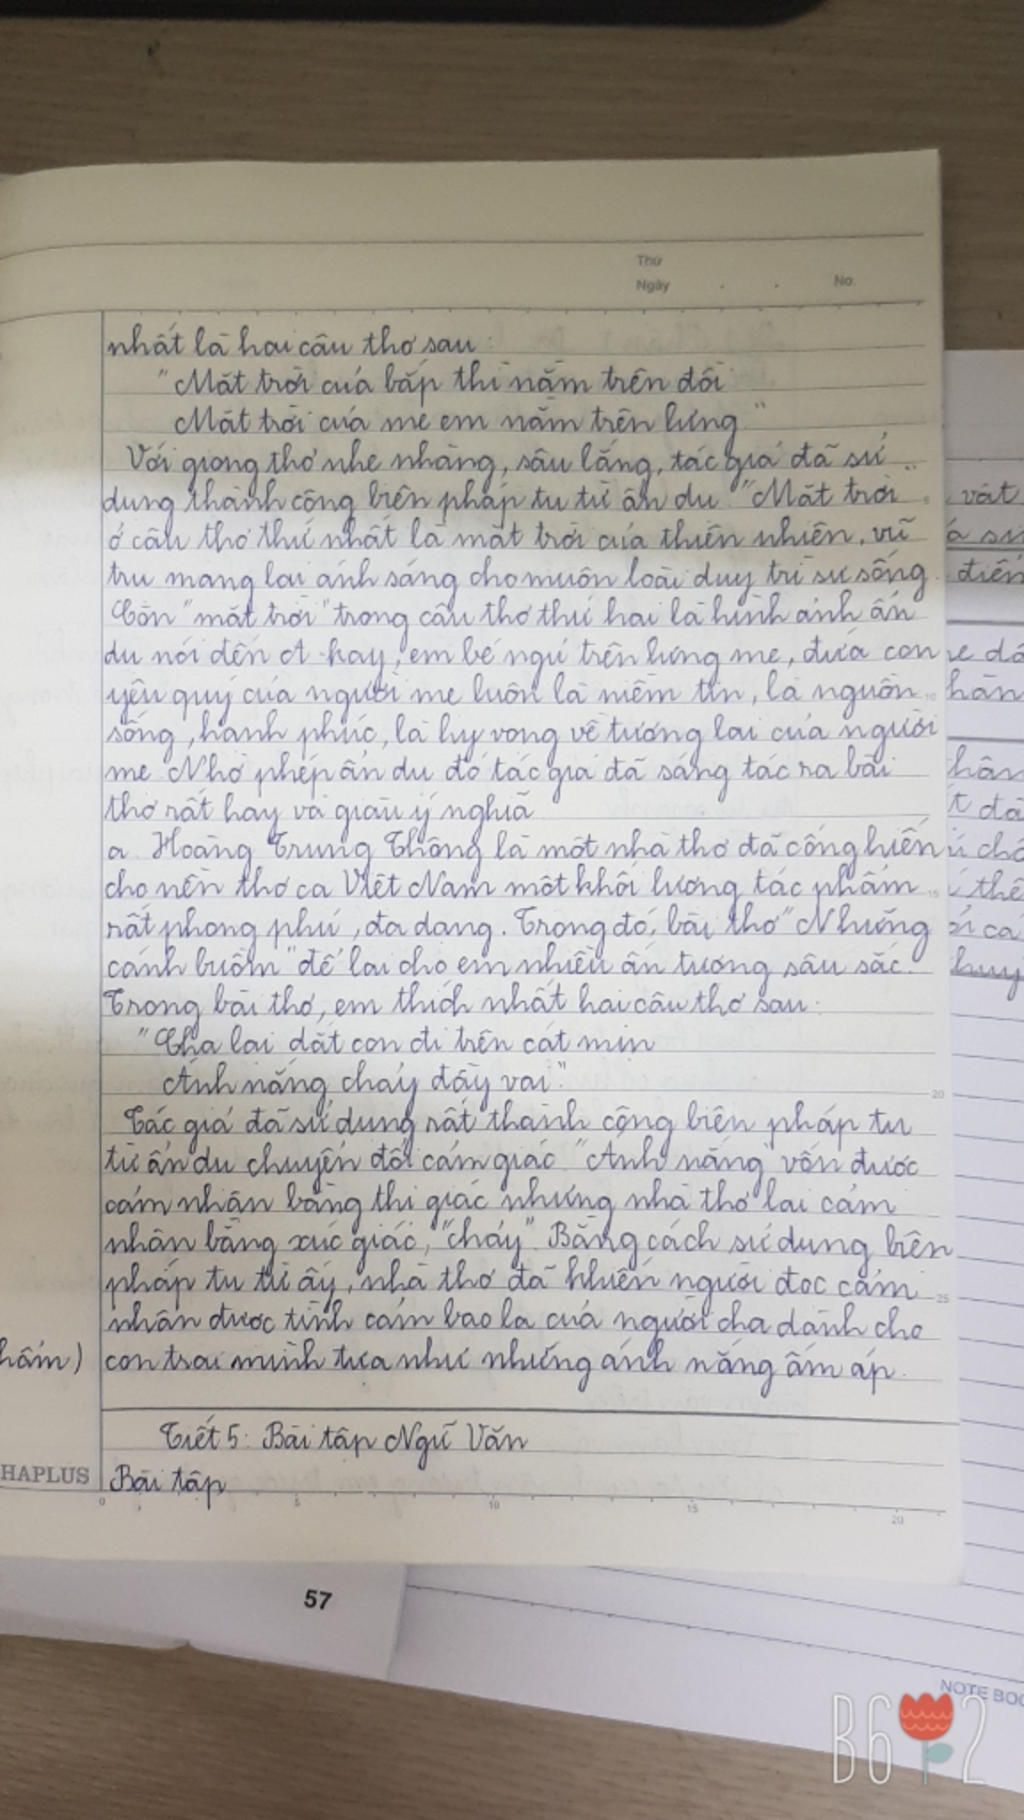 Thứ
Ngày . . No.
nhất là hai câu thơ sau:
"Mặt trời của bắp thì nằm trên đồi
Mặt trời của mẹ em nằm trên lưng"
Với giọng thơ nhẹ nhàng, sâu lắng, tác giả đã sử
dụng thành công biện pháp tu từ ẩn dụ. "Mặt trời"
ở câu thơ thứ nhất là mặt trời của thiên nhiên, vũ
trụ mang lại ánh sáng cho muôn loài duy trì sự sống.
Còn "mặt trời" trong câu thơ thứ hai là hình ảnh ẩn
dụ nói đến A-kay, em bé ngủ trên lưng mẹ, đứa con
yêu quý của người mẹ luôn là niềm tin, là nguồn
sống, hạnh phúc, là hy vọng về tương lai của người
mẹ. Nhờ phép ẩn dụ đó tác giả đã sáng tác ra bài
thơ rất hay và giàu ý nghĩa
a. Hoàng Trung Thông là một nhà thơ đã cống hiến
cho nền thơ ca Việt Nam một khối lượng tác phẩm
rất phong phú, đa dạng. Trong đó, bài thơ "Những
cánh buồm" để lại cho em nhiều ấn tượng sâu sắc.
Trong bài thơ, em thích nhất hai câu thơ sau:
"Cha lại dắt con đi trên cát mịn
Ánh nắng chảy đầy vai"
Tác giả đã sử dụng rất thành công biện pháp tu
từ ẩn dụ chuyển đổi cảm giác. "Ánh nắng" vốn được
cảm nhận bằng thị giác nhưng nhà thơ lại cảm
nhận bằng xúc giác, "chảy". Bằng cách sử dụng biện
pháp tu từ ấy, nhà thơ đã khiến người đọc cảm
nhận được tình cảm bao la của người cha dành cho
hẩm) con trai mình tựa như những ánh nắng ấm áp.
Tiết 5: Bài tập Ngữ Văn
HAPLUS Bài tập
0 5 10 15 20
57
NOTE BOO
B6 2